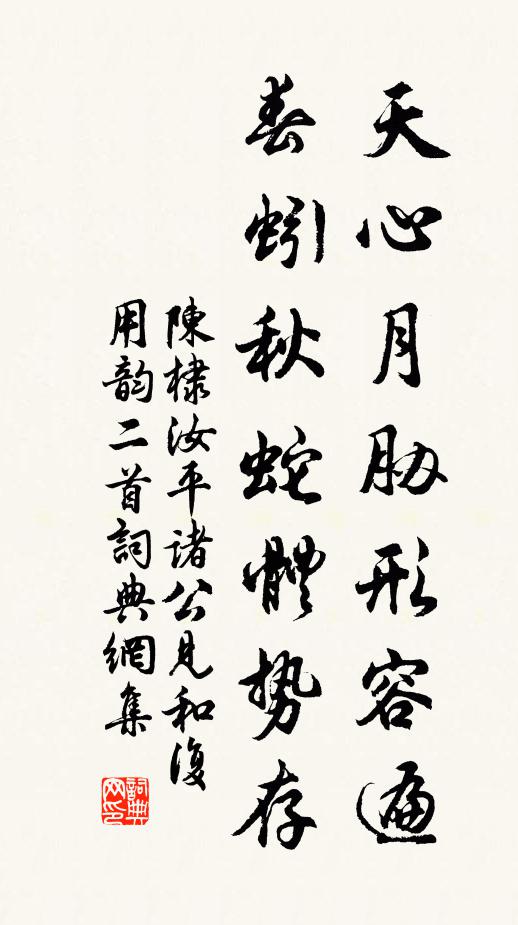 天心月胁形容遍
春蚓秋蛇體勢存
陳棣汝平諸公見和復
用韵二首詞典網集
詞典網印